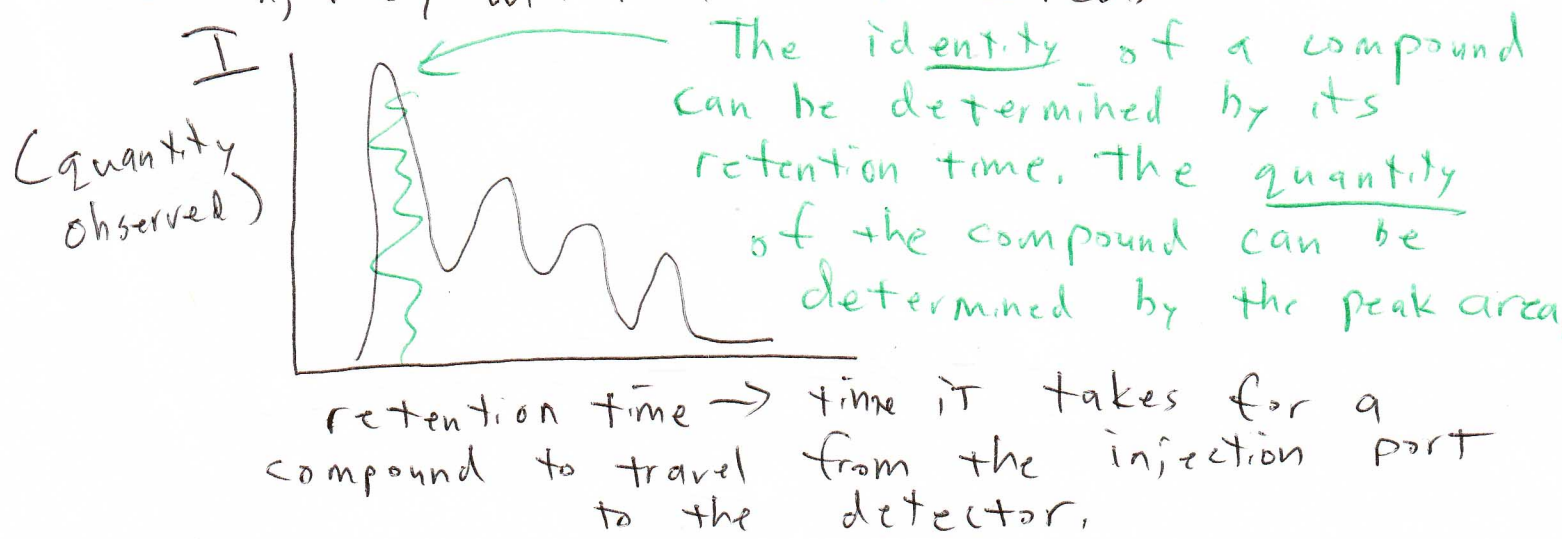 I
(quantity
observed)
The identity of a compound
can be determined by its
retention time. The quantity
of the compound can be
determined by the peak area
retention time → time it takes for a
compound to travel from the injection port
to the detector.